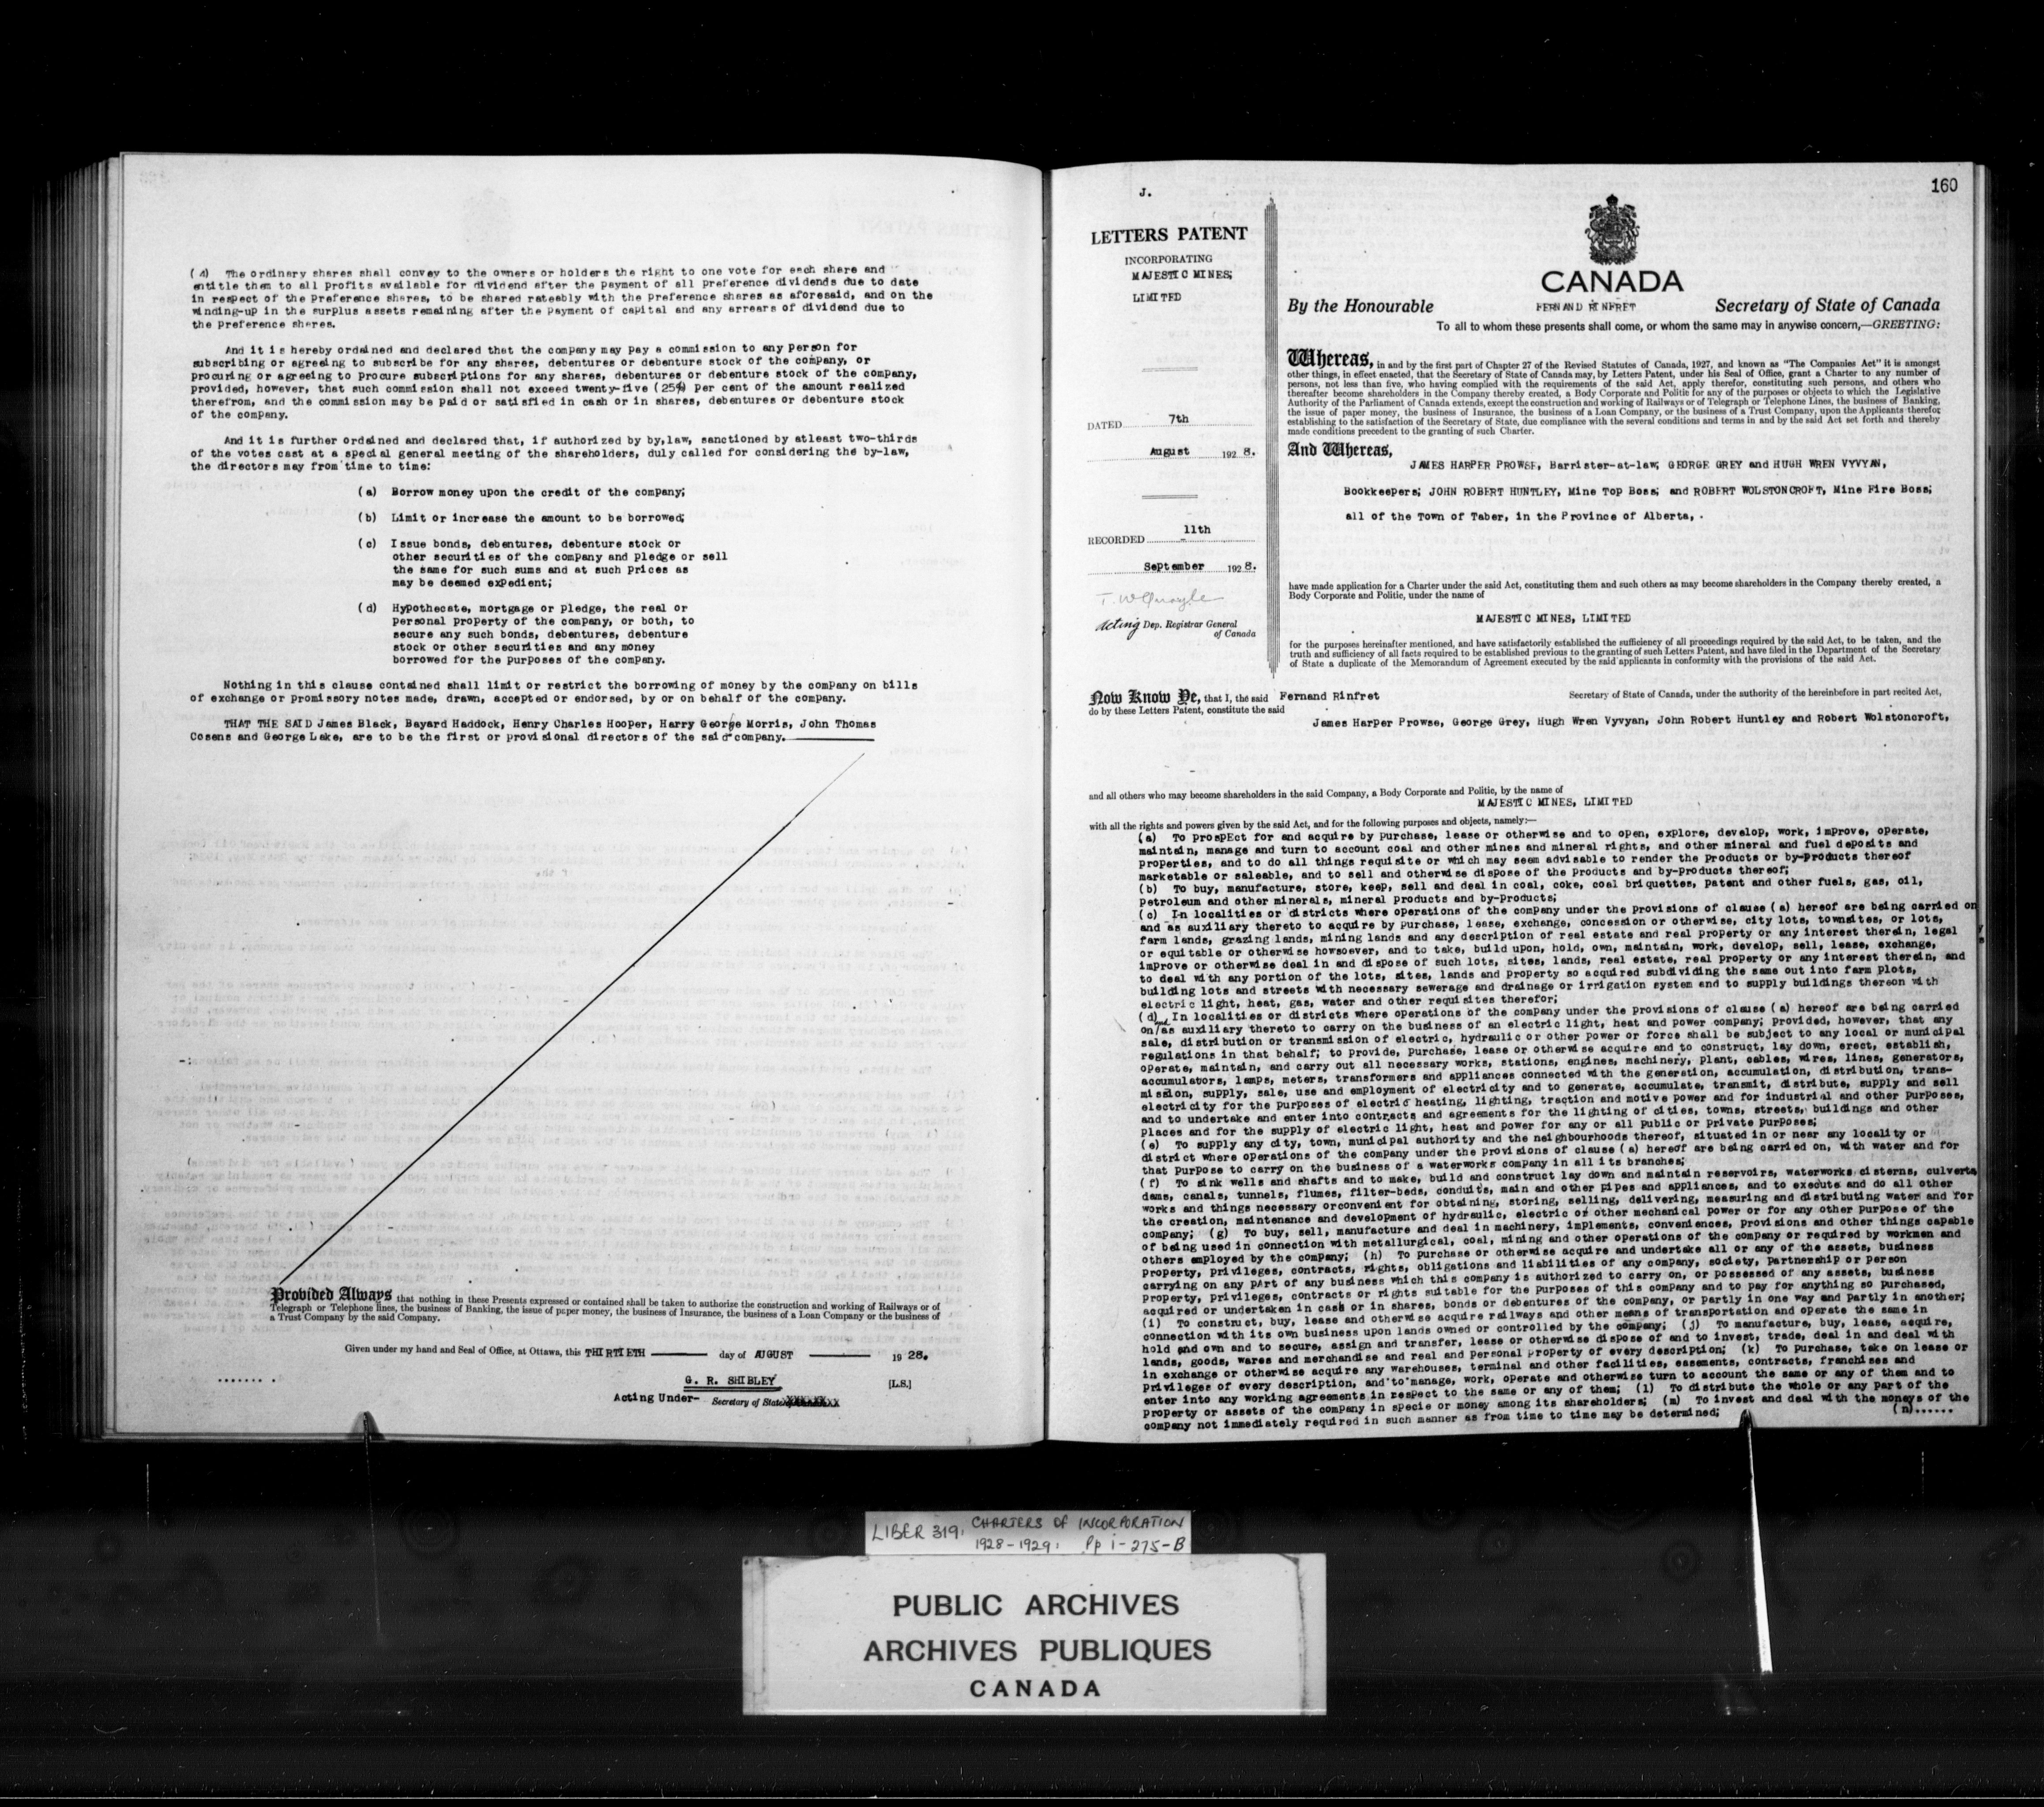 (d) The ordinary shares shall convey to the owners or holders the right to one vote for each share and
entitle them to all Profits available for dividend after the payment of all preference dividends due to date
in respect of the Preference shares, to be shared rateably with the Preference shares as aforesaid, and on the
winding-up in the surplus assets remaining after the Payment of capital and any arrears of dividend due to
the Preference shares.
And it is hereby ordained and declared that the company may pay a commission to any Person for
subscribing or agreeing to subscribe for any shares, debentures or debenture stock of the company, or
procuring or agreeing to procure subscriptions for any shares, debentures or debenture stock of the company,
provided, however, that such commission shall not exceed twenty-five (25%) Per cent of the amount realized
therefrom, and the commission may be paid or satisfied in cash or in shares, debentures or debenture stock
of the company.
And it is further ordained and declared that, if authorized by by,law, sanctioned by atleast two-thirds
of the votes cast at a special general meeting of the shareholders, duly called for considering the by-law,
the directors may from time to time:
(a) Borrow money upon the credit of the company;
(b) Limit or increase the amount to be borrowed;
(c) Issue bonds, debentures, debenture stock or
other securities of the company and pledge or sell
the same for such sums and at such Prices as
may be deemed expedient;
(d) Hypothecate, mortgage or pledge, the real or
personal property of the company, or both, to
secure any such bonds, debentures, debenture
stock or other securities and any money
borrowed for the purposes of the company.
Nothing in this clause contained shall limit or restrict the borrowing of money by the company on bills
of exchange or promissory notes made, drawn, accepted or endorsed, by or on behalf of the company.
THAT THE SAID James Black, Bayard Haddock, Henry Charles Hooper, Harry George Morris, John Thomas
Cosens and George Lake, are to be the first or provisional directors of the said company.
Provided Always that nothing in these Presents expressed or contained shall be taken to authorize the construction and working of Railways or of
Telegraph or Telephone lines, the business of Banking, the issue of paper money, the business of Insurance, the business of a Loan Company or the business of
a Trust Company by the said Company.
Given under my hand and Seal of Office, at Ottawa, this THIRTIETH day of AUGUST 1928.
G. R. SHIBLEY [L.S.]
Acting Under- Secretary of State
160
J.
LETTERS PATENT
INCORPORATING
MAJESTIC MINES,
LIMITED
DATED 7th
August 1928.
RECORDED 11th
September 1928.
T. W. Quayle
Acting Dep. Registrar General
of Canada
CANADA
By the Honourable FERNAND RINFRET Secretary of State of Canada
To all to whom these presents shall come, or whom the same may in anywise concern,—GREETING:
Whereas, in and by the first part of Chapter 27 of the Revised Statutes of Canada, 1927, and known as "The Companies Act" it is amongst
other things, in effect enacted, that the Secretary of State of Canada may, by Letters Patent, under his Seal of Office, grant a Charter to any number of
persons, not less than five, who having complied with the requirements of the said Act, apply therefor, constituting such persons, and others who
thereafter become shareholders in the Company thereby created, a Body Corporate and Politic for any of the purposes or objects to which the Legislative
Authority of the Parliament of Canada extends, except the construction and working of Railways or of Telegraph or Telephone Lines, the business of Banking,
the issue of paper money, the business of Insurance, the business of a Loan Company, or the business of a Trust Company, upon the Applicants therefor
establishing to the satisfaction of the Secretary of State, due compliance with the several conditions and terms in and by the said Act set forth and thereby
made conditions precedent to the granting of such Charter.
And Whereas,
JAMES HARPER PROWSE, Barrister-at-law; GEORGE GREY and HUGH WREN VYVYAN,
Bookkeepers; JOHN ROBERT HUNTLEY, Mine Top Boss; and ROBERT WOLSTONCROFT, Mine Fire Boss;
all of the Town of Taber, in the Province of Alberta,
have made application for a Charter under the said Act, constituting them and such others as may become shareholders in the Company thereby created, a
Body Corporate and Politic, under the name of
MAJESTIC MINES, LIMITED
for the purposes hereinafter mentioned, and have satisfactorily established the sufficiency of all proceedings required by the said Act, to be taken, and the
truth and sufficiency of all facts required to be established previous to the granting of such Letters Patent, and have filed in the Department of the Secretary
of State a duplicate of the Memorandum of Agreement executed by the said applicants in conformity with the provisions of the said Act.
Now Know Ye, that I, the said Fernand Rinfret Secretary of State of Canada, under the authority of the hereinbefore in part recited Act,
do by these Letters Patent, constitute the said
James Harper Prowse, George Grey, Hugh Wren Vyvyan, John Robert Huntley and Robert Wolstoncroft,
and all others who may become shareholders in the said Company, a Body Corporate and Politic, by the name of
MAJESTIC MINES, LIMITED
with all the rights and powers given by the said Act, and for the following purposes and objects, namely:—
(a) To prospEct for and acquire by purchase, lease or otherwise and to open, explore, develop, work, improve, operate,
maintain, manage and turn to account coal and other mines and mineral rights, and other mineral and fuel deposits and
properties, and to do all things requisite or which may seem advisable to render the Products or by-Products thereof
marketable or saleable, and to sell and otherwise dispose of the Products and by-Products thereof;
(b) To buy, manufacture, store, keep, sell and deal in coal, coke, coal briquettes, Patent and other fuels, gas, oil,
petroleum and other minerals, mineral products and by-Products;
(c) In localities or districts where operations of the company under the provisions of clause (a) hereof are being carried on
and as auxiliary thereto to acquire by Purchase, lease, exchange, concession or otherwise, city lots, townsites, or lots,
farm lands, grazing lands, mining lands and any description of real estate and real property or any interest therein, legal
or equitable or otherwise howsoever, and to take, build upon, hold, own, maintain, work, develop, sell, lease, exchange,
improve or otherwise deal in and dispose of such lots, sites, lands, real estate, real property or any interest therein, and
to deal with any portion of the lots, sites, lands and property so acquired subdividing the same out into farm plots,
building lots and streets with necessary sewerage and drainage or irrigation system and to supply buildings thereon with
electric light, heat, gas, water and other requisites therefor;
(d) In localities or districts where operations of the company under the provisions of clause (a) hereof are being carried
on/and as auxiliary thereto to carry on the business of an electric light, heat and power company; provided, however, that any
sale, distribution or transmission of electric, hydraulic or other Power or force shall be subject to any local or municipal
regulations in that behalf; to provide, Purchase, lease or otherwise acquire and to construct, lay down, erect, establish,
operate, maintain, and carry out all necessary works, stations, engines, machinery, plant, cables, wires, lines, generators,
accumulators, lamps, meters, transformers and appliances connected with the generation, accumulation, distribution, trans-
mission, supply, sale, use and employment of electricity and to generate, accumulate, transmit, distribute, supply and sell
electricity for the Purposes of electric heating, lighting, traction and motive Power and for industrial and other Purposes,
and to undertake and enter into contracts and agreements for the lighting of cities, towns, streets, buildings and other
Places and for the supply of electric light, heat and Power for any or all Public or Private Purposes;
(e) To supply any city, town, municipal authority and the neighbourhoods thereof, situated in or near any locality or
district where operations of the company under the provisions of clause (a) hereof are being carried on, with water and for
that Purpose to carry on the business of a waterworks company in all its branches;
(f) To sink wells and shafts and to make, build and construct lay down and maintain reservoirs, waterworks cisterns, culverts
dams, canals, tunnels, flumes, filter-beds, conduits, main and other pipes and appliances, and to execute and do all other
works and things necessary orconvenient for obtaining, storing, selling, delivering, measuring and distributing water and for
the creation, maintenance and development of hydraulic, electric or other mechanical power or for any other Purpose of the
company; (g) To buy, sell, manufacture and deal in machinery, implements, conveniences, Provisions and other things capable
of being used in connection with metallurgical, coal, mining and other operations of the company or required by workmen and
others employed by the company; (h) To purchase or otherwise acquire and undertake all or any of the assets, business
Property, privileges, contracts, rights, obligations and liabilities of any company, society, Partnership or Person
carrying on any Part of any business which this company is authorized to carry on, or possessed of any assets, business
Property, privileges, contracts or rights suitable for the Purposes of this company and to pay for anything so Purchased,
acquired or undertaken in cash or in shares, bonds or debentures of the company, or Partly in one way and Partly in another;
(i) To construct, buy, lease and otherwise acquire railways and other means of transportation and operate the same in
connection with its own business upon lands owned or controlled by the company; (j) To manufacture, buy, lease, acquire,
hold and own and to secure, assign and transfer, lease or otherwise dispose of and to invest, trade, deal in and deal with
lands, goods, wares and merchandise and real and Personal Property of every description; (k) To Purchase, take on lease or
in exchange or otherwise acquire any warehouses, terminal and other facilities, easements, contracts, franchises and
Privileges of every description, and to manage, work, operate and otherwise turn to account the same or any of them and to
enter into any working agreements in respect to the same or any of them; (l) To distribute the whole or any Part of the
property or assets of the company in specie or money among its shareholders; (m) To invest and deal with the moneys of the
company not immediately required in such manner as from time to time may be determined;
(n)......
LIBER 319: CHARTERS OF INCORPORATION
1928-1929: Pp i-275-B
PUBLIC ARCHIVES
ARCHIVES PUBLIQUES
CANADA